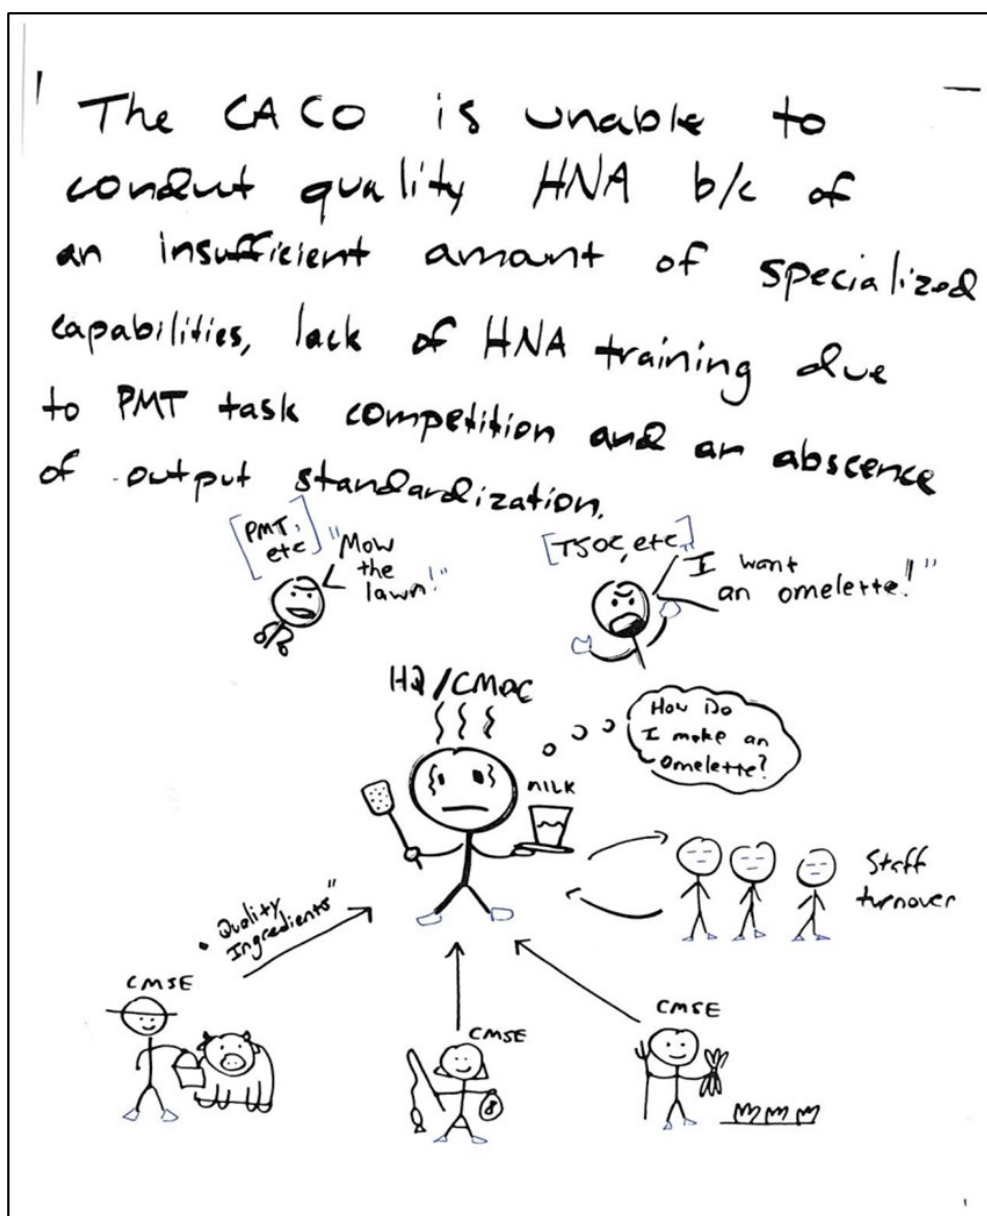 The CACO is unable to
conduct quality HNA b/c of
an insufficient amount of specialized
capabilities, lack of HNA training due
to PMT task competition and an abscence
of output standardization.
[PMT,
etc]
"Mow
the
lawn!"
[TSOC, etc]
I want
an omelette!"
HQ/CMOC
How Do
I make an
omelette?
MILK
Staff
turnover
Quality
Ingredients"
CMSE
CMSE
CMSE